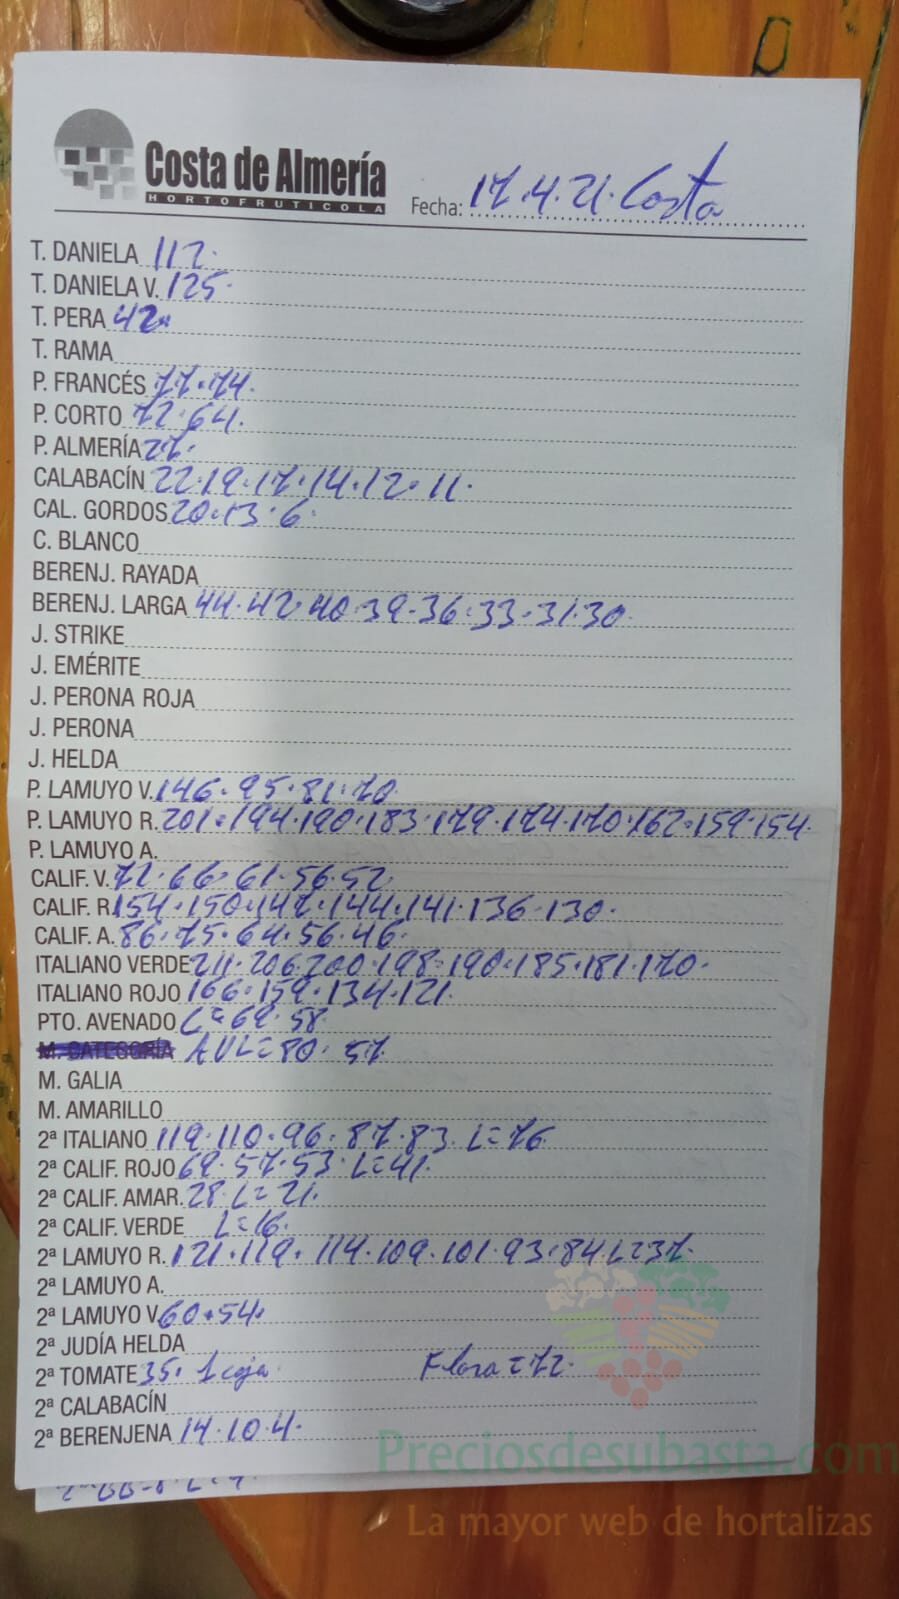 Costa de Almería
HORTOFRUTICOLA
Fecha: 17.4.21. Costa
T. DANIELA 112.
T. DANIELA V. 125.
T. PERA 42.
T. RAMA
P. FRANCÉS 77.74.
P. CORTO 72.64.
P. ALMERÍA 27.
CALABACÍN 22.19.17.14.12.11.
CAL. GORDOS 20.13.6.
C. BLANCO
BERENJ. RAYADA
BERENJ. LARGA 44.42.40.39.36.33.31.30.
J. STRIKE
J. EMÉRITE
J. PERONA ROJA
J. PERONA
J. HELDA
P. LAMUYO V. 146.95.81.70.
P. LAMUYO R. 201.194.190.183.179.174.170.162.159.154.
P. LAMUYO A.
CALIF. V. 72.66.61.56.52.
CALIF. R. 154.150.147.144.141.136.130.
CALIF. A. 86.75.64.56.46.
ITALIANO VERDE 211.206.200.198.190.185.181.170.
ITALIANO ROJO 166.159.134.121.
PTO. AVENADO L=69.58.
M. CATEGORÍA AVL=80.57.
M. GALIA
M. AMARILLO
2ª ITALIANO 119.110.96.87.83. L=76.
2ª CALIF. ROJO 69.57.53. L=41.
2ª CALIF. AMAR. 28. L=21.
2ª CALIF. VERDE L=16.
2ª LAMUYO R. 121.119.114.109.101.93.84. L=37.
2ª LAMUYO A.
2ª LAMUYO V. 60.54.
2ª JUDÍA HELDA
2ª TOMATE 35. 1 caja Flora=72.
2ª CALABACÍN
2ª BERENJENA 14.10.4.
Preciosdesubasta.com
La mayor web de hortalizas